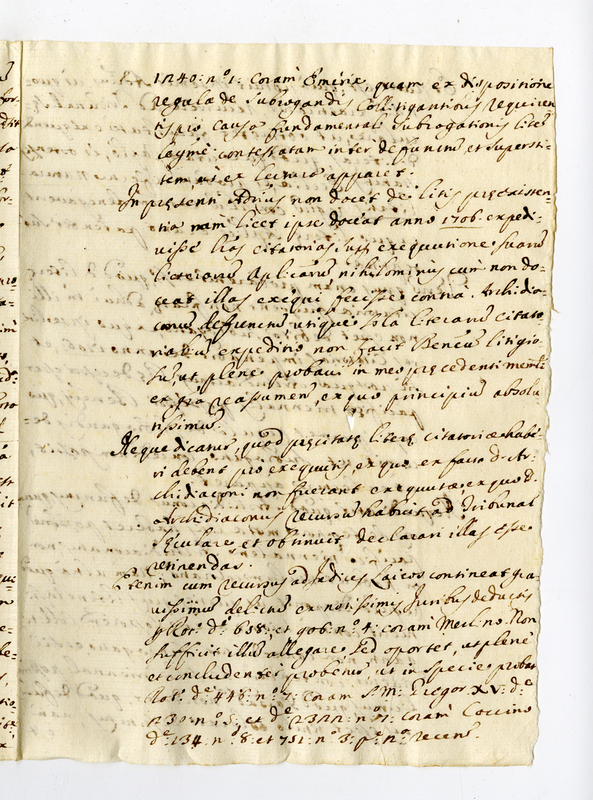 1240: nº 1: coram Emerix, quam ex dispositione
regula de Subrogandis Collitigantibus requiren
tis pro causa fundamentali Subrogationis litem
legme contestatam inter defunctum, et supersti-
tem, ut ex lectura apparet.
In presenti Advius non docet de litis preexisten-
tia nam licet ipse doceat anno 1706 expedi-
visse lras citatorias
literarum Aplicarum nihilominus cum non do-
ceat illas exequi fecisse contra Archidia-
conum defunctum, utique sola literarum citato
riarum expeditio non facit Beneum litigio
sum, ut plene probavi in meo precedenti
ex quo principium absolu
tissimum
Neque dicatur, quod precitate litere citatoriae habe-
ri debent pro exequutis, ex quo ex facto D. Ar-
chidiaconi non fuerunt exequutae ex quo D.
Archidiaconus recursum habuit ad Tribunal
Seculare et obtinuit declarari illas esse
retinendas.
Etenim cum recursus ad Judices Laicos contineat gra-
vissimum delictum ex notissimis Juribus deductis
Rot: dº 658: et 906: nº 4: coram Merlino Non
sufficit illum allegare sed oportet, ut plene
et concludenter probetur, ut in specie probat
Rot: dº 448: nº 7: coram S.M: Gregor XV: dº
130: nº 5: et dº 2322: nº 7: coram Coccino
dº 134: nº 8: et 751: nº 3: pº nº recens.